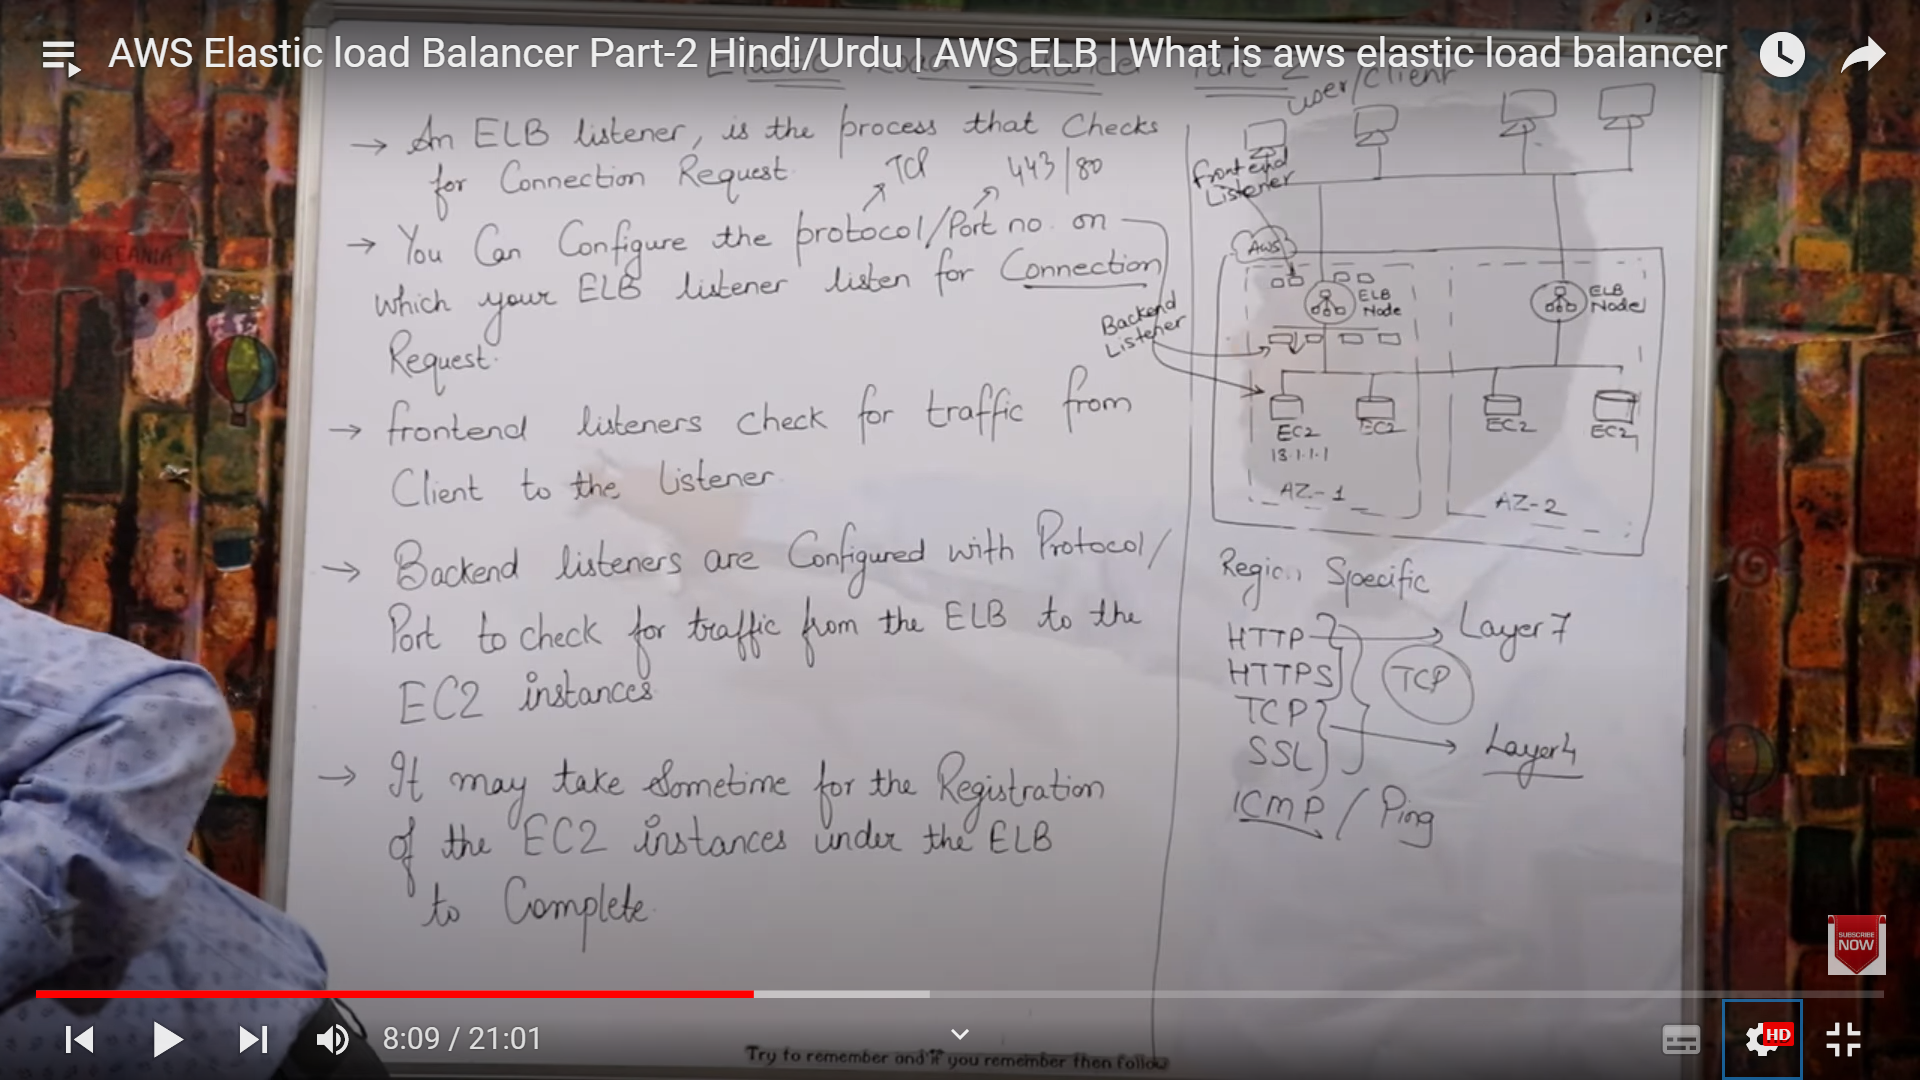 AWS Elastic load Balancer Part-2 Hindi/Urdu | AWS ELB | What is aws elastic load balancer
Elastic Load Balancer Part-2
→ An ELB listener, is the process that Checks
for Connection Request
TCP 443/80
→ You Can Configure the protocol/Port no. on
which your ELB listener listen for Connection
Request.
→ frontend listeners check for traffic from
Client to the Listener
→ Backend listeners are Configured with Protocol/
Port to check for traffic from the ELB to the
EC2 instances
→ It may take Sometime for the Registration
of the EC2 instances under the ELB
to Complete
user/client
frontend
Listener
AWS
ELB
Node
ELB
Node
Backend
Listener
EC2 EC2 EC2 EC2
13.1.1.1
AZ-1 AZ-2
Region Specific
HTTP → Layer 7
HTTPS TCP
TCP
SSL → Layer 4
ICMP / Ping
SUBSCRIBE
NOW
8:09 / 21:01
HD
Try to remember and if you remember then follow